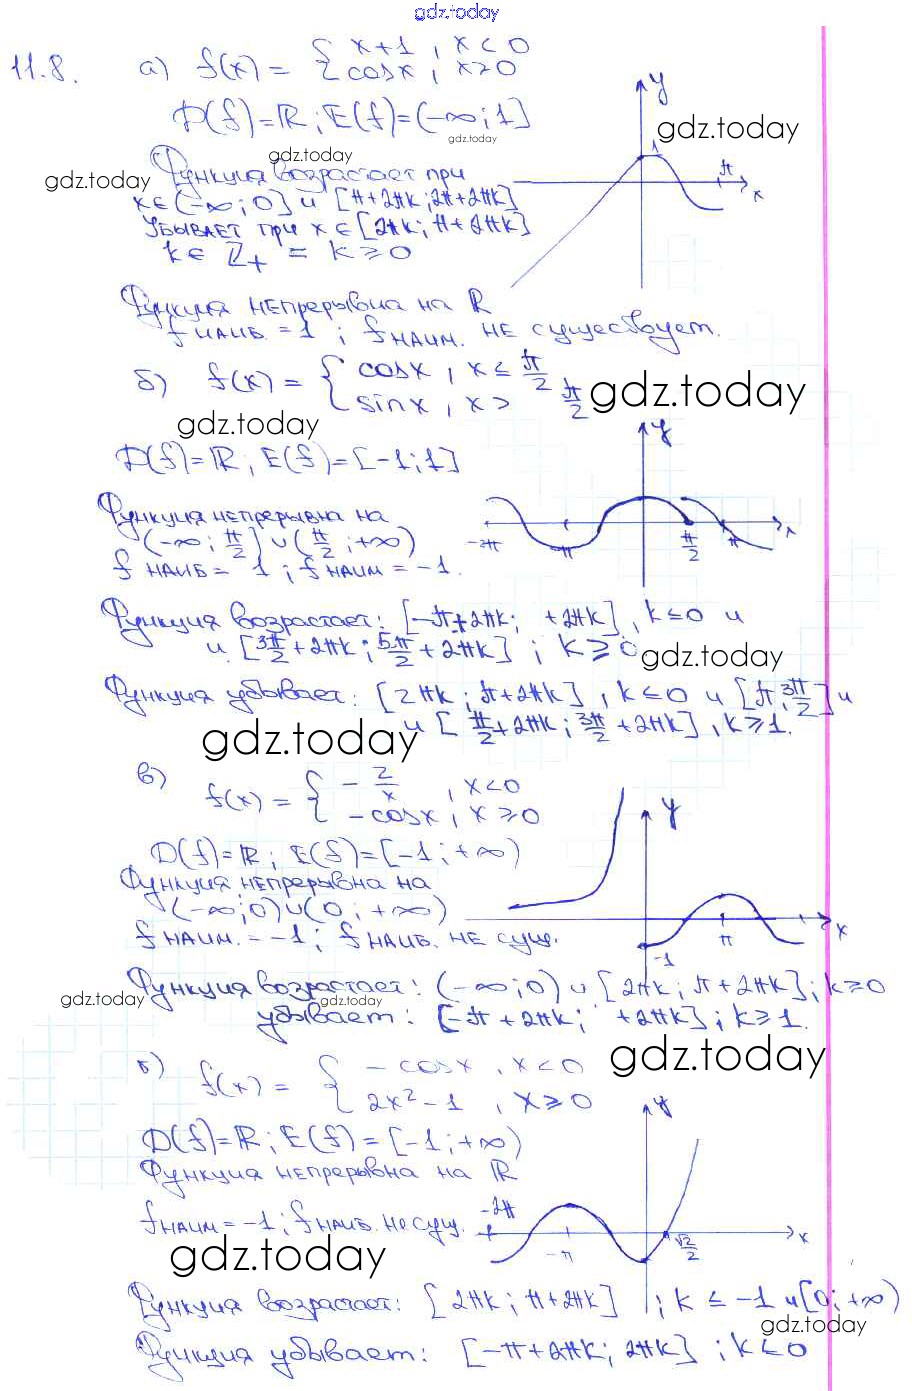 gdz.today
11.8. а) f(x) = { x+1, x<0
cosx, x>0
D(f)=ℝ; E(f)=(-∞;1]
y
gdz.today
gdz.today
gdz.today
gdz.today
1
π
x
Функция возрастает при
x∈(-∞;0] и [π+2πk; 2π+2πk]
Убывает при x∈[2πk; π+2πk]
k∈ℤ₊ = k≥0
Функция непрерывна на ℝ
fнаиб.=1; fнаим. не существует.
б) f(x) = { cosx, x≤π/2
sinx, x>π/2
gdz.today
gdz.today
D(f)=ℝ; E(f)=[-1;1]
y
Функция непрерывна на
(-∞; π/2] ∪ (π/2; +∞)
-2π
π
π/2
π
x
fнаиб=1; fнаим=-1.
Функция возрастает: [-π+2πk; +2πk], k≤0 и
и [3π/2+2πk; 5π/2+2πk]; k≥0
gdz.today
Функция убывает: [2πk; π+2πk], k≤0 и [π; 3π/2] и
и [π/2+2πk; 3π/2+2πk], k≥1.
gdz.today
в) f(x) = { -2/x, x<0
-cosx, x≥0
y
D(f)=ℝ; E(f)=[-1;+∞)
Функция непрерывна на
(-∞;0)∪(0;+∞)
fнаим.=-1; fнаиб. не сущ.
-1
π
x
Функция возрастает: (-∞;0) и [2πk; π+2πk]; k≥0
gdz.today
gdz.today
убывает: [-π+2πk; +2πk]; k≥1.
gdz.today
б) f(x) = { -cosx, x<0
2x²-1, x≥0
y
D(f)=ℝ; E(f)=[-1;+∞)
Функция непрерывна на ℝ
fнаим=-1; fнаиб. не сущ.
-2π
-π
√2/2
x
gdz.today
Функция возрастает: [2πk; π+2πk]; k≤-1 и [0;+∞)
gdz.today
Функция убывает: [-π+2πk; 2πk]; k≤0